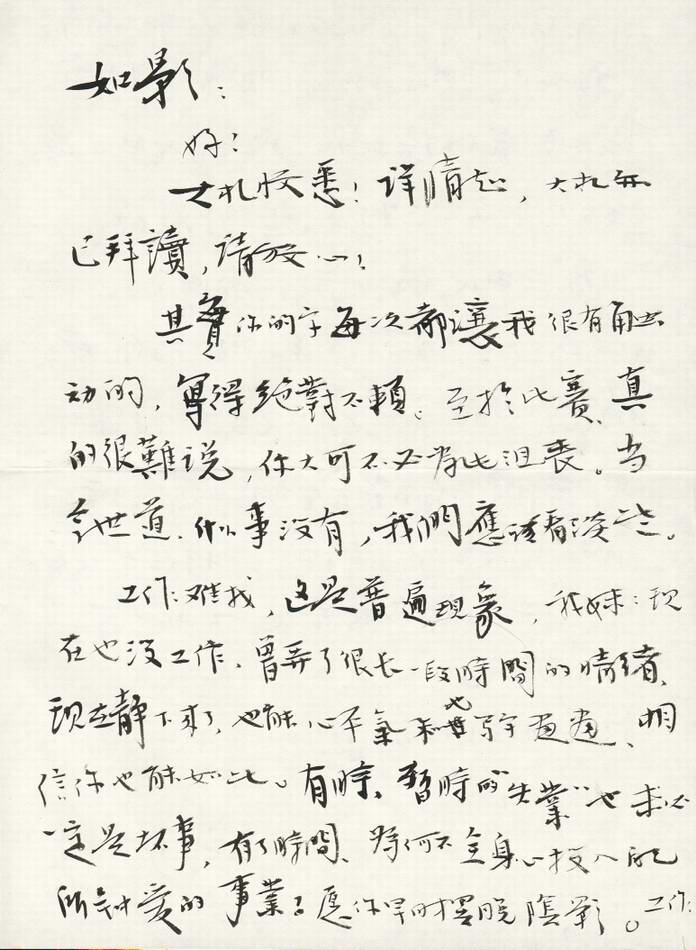 如影：
好！
大札收悉！详情知，大札年
已拜讀，请放心！
其實你的字每次都讓我很有触
动的，寫得絕對不賴。至於比賽，真
的很難说，你大可不必為此沮喪。当
今世道，什么事没有，我們應该看淡些。
工作难找，这是普遍現象，我妹：现
在也没工作，曾弄了很长一段時間的情緒，
现在静下来了，也能心平氣和地寫字画畫，相
信你也能如此。有時，暫時的“失業”也未必
一定是坏事，有了時間，為何不全身心投入到
所钟爱的事業？愿你早时摆脱陰影。工作